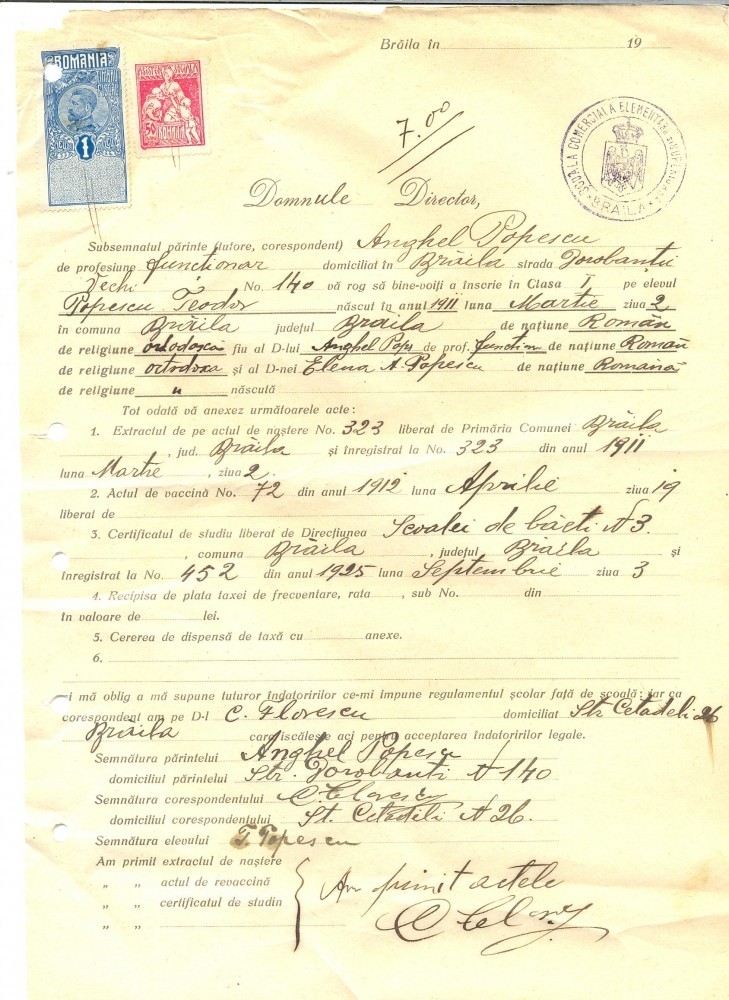 Brăila în 19
ROMANIA
1
50
ROMANIA
7.00
ȘCOALA COMERCIALA ELEMENTARA
BRAILA
Domnule Director,
Subsemnatul părinte (tutore, corespondent) Anghel Popescu
de profesiune funcționar domiciliat în Brăila strada Dorobanții
Vechi No. 140 vă rog să bine-voiți a înscrie în Clasa I pe elevul
Popescu Teodor născut în anul 1911 luna Martie ziua 2
în comuna Brăila județul Brăila de națiune Român
de religiune ortodoxă fiu al D-lui Anghel Pops de prof. function de națiune Român
de religiune ortodoxa și al D-nei Elena A. Popescu de națiune Română
de religiune " născută
Tot odată vă anexez următoarele acte:
1. Extractul de pe actul de naștere No. 323 liberat de Primăria Comunei Brăila
, jud. Brăila și înregistrat la No. 323 din anul 1911
luna Martie, ziua 2.
2. Actul de vaccină No. 72 din anul 1912 luna Aprilie ziua 19
liberat de
3. Certificatul de studiu liberat de Direcțiunea Scoalei de băeti N 3.
, comuna Brăila, județul Brăila și
înregistrat la No. 452 din anul 1925 luna Septembrie ziua 3
4. Recipisa de plata taxei de frecventare, rata , sub No. din
în valoare de lei.
5. Cererea de dispensă de taxă cu anexe.
6.
și mă oblig a mă supune tuturor îndatoririlor ce-mi impune regulamentul școlar față de școală; iar ca
corespondent am pe D-l C. Florescu domiciliat Str Cetadeli 26
Brăila care iscălește aci pentru acceptarea îndatoririlor legale.
Semnătura părintelui Anghel Popescu
domiciliul părintelui Str. Dorobanti N 140
Semnătura corespondentului
domiciliul corespondentului St. Cetadeli N 26.
Semnătura elevului T. Popescu
Am primit extractul de naștere
„ „ actul de revaccină
„ „ certificatul de studin
„ „
Am primit actele